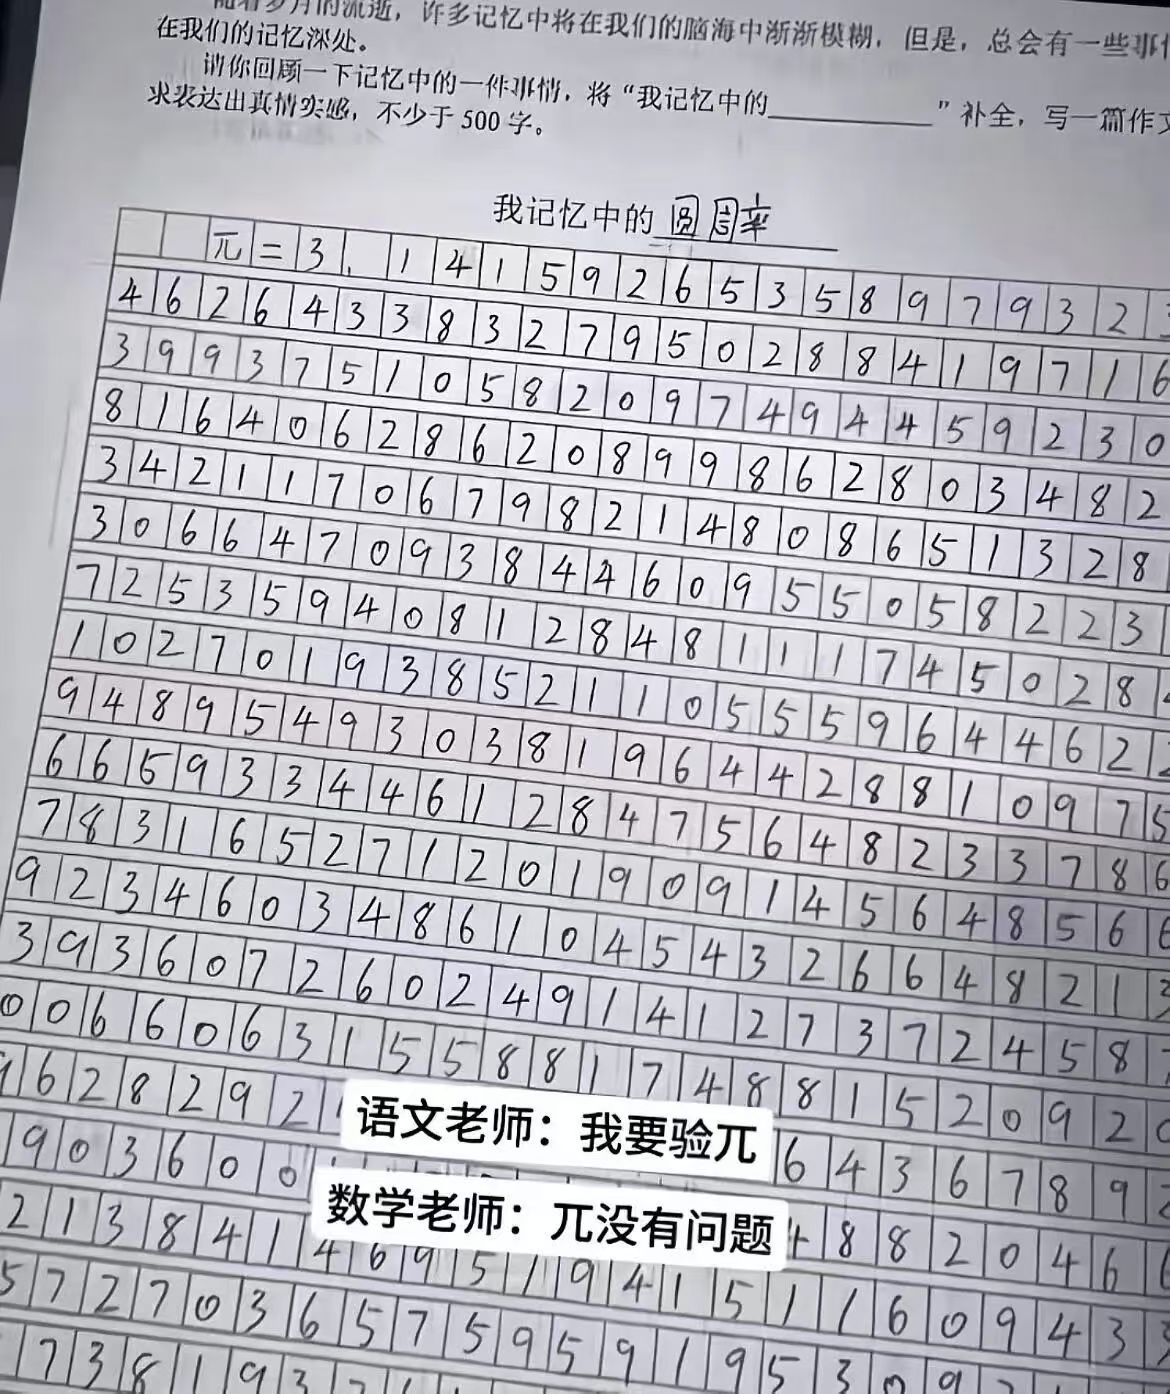 随着岁月的流逝，许多记忆中将在我们的脑海中渐渐模糊，但是，总会有一些事情
在我们的记忆深处。
请你回顾一下记忆中的一件事情，将“我记忆中的____________”补全，写一篇作文
求表达出真情实感，不少于 500 字。
我记忆中的 圆周率
兀=3.14159265358979323
46264338327950288419716
39937510582097494459230
81640628620899862803482
34211706798214808651328
30664709384460955058223
72535940812848111745028
102701938521105559644622
948954930381964428810975
665933446128475648233786
783165271201909145648566
923460348610454326648213
39360726024914127372458
006606315588174881520920
9628292
6436789
903600
4882046
21384146951941511609433
5727036575959195309
738193
语文老师：我要验兀
数学老师：兀没有问题